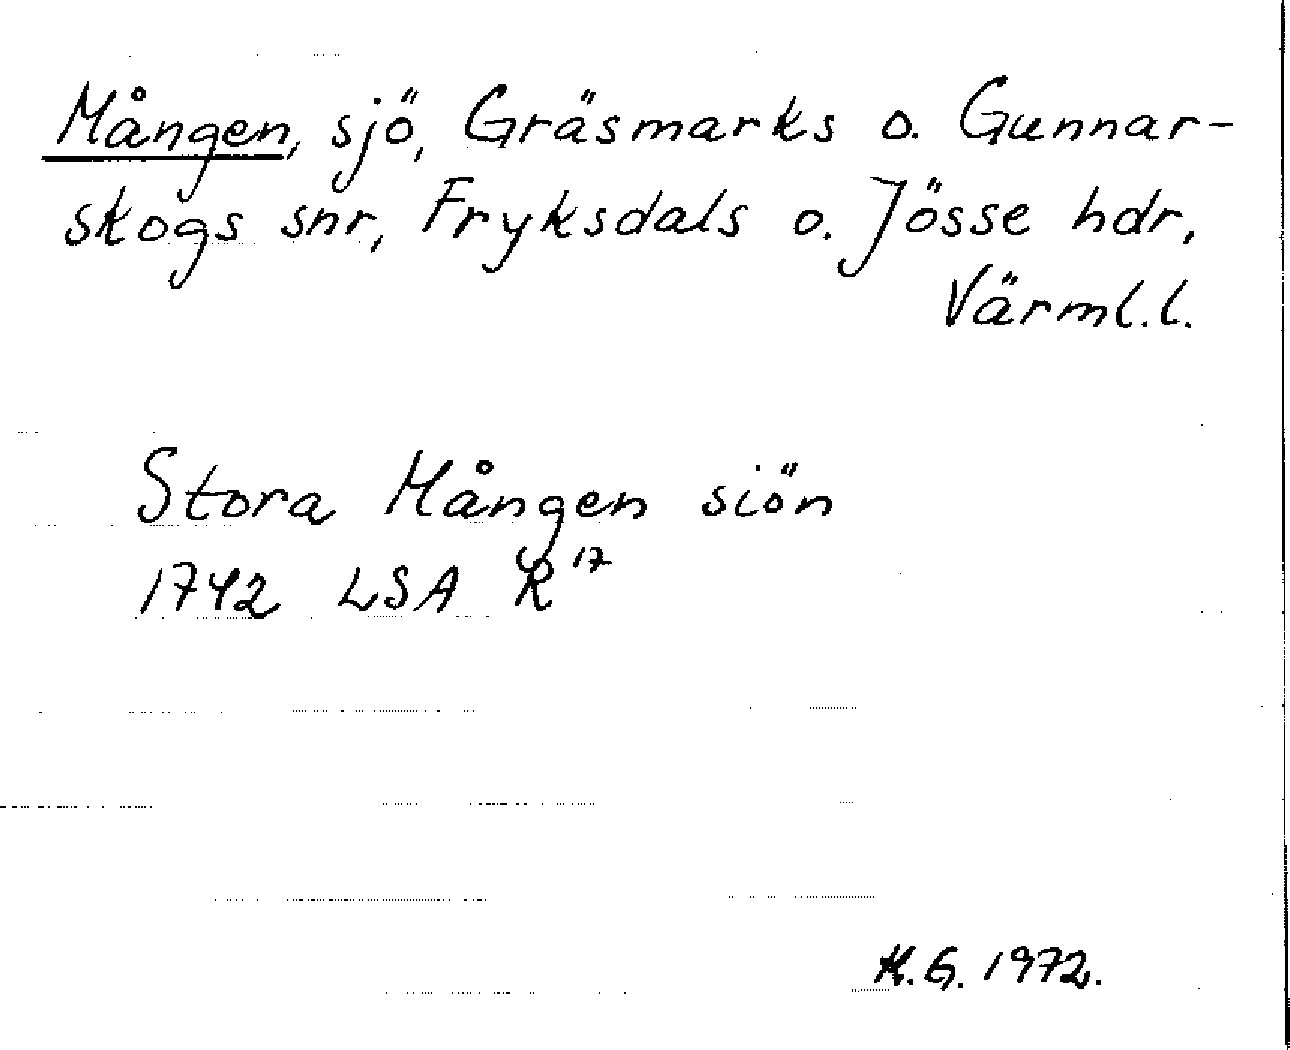 Mången, sjö, Gräsmarks o. Gunnar-
skogs snr, Fryksdals o. Jösse hdr,
Värml.l.
Stora Mången siön
1742 LSA R17
K.G. 1972.